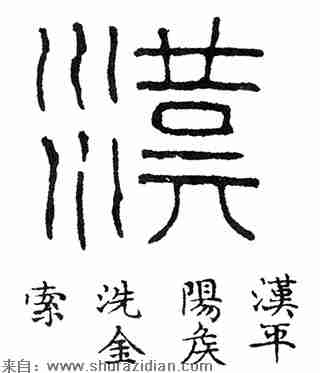 漢
漢平
陽矦
洗金
索
来自:www.shufazidian.com